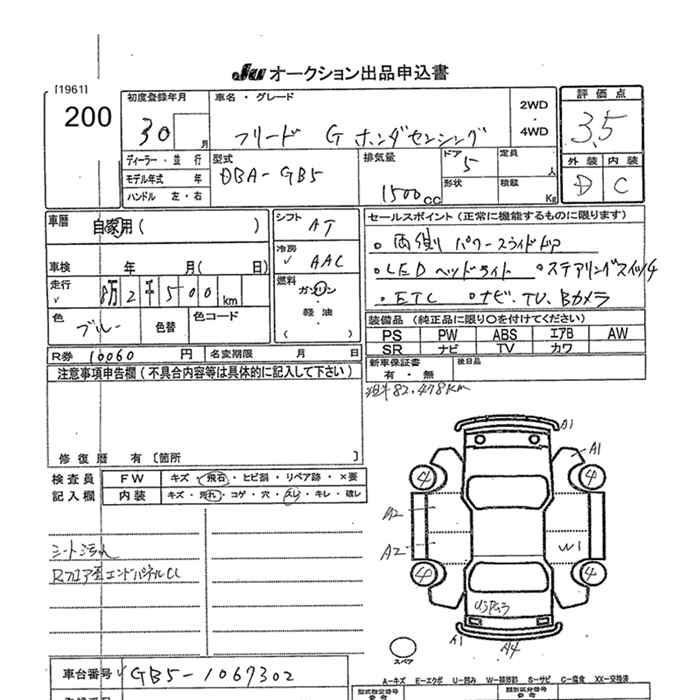 JU オークション出品申込書
[1961]
200
初度登録年月
30 月
車名・グレード
フリード G ホンダセンシング
2WD
・
4WD
評価点
3.5
外装 内装
D C
ディーラー・並行
モデル年式 年
ハンドル 左・右
型式
DBA-GB5
排気量
1500cc
ドア 5
形状
定員 人
積載 Kg
車暦 自家用( )
シフト AT
冷房 AAC
車検 年 月( 日)
走行 8万2千500km
燃料
ガソリン
・
軽油
・
( )
色 ブルー 色替 色コード
R券 10060 円 名変期限 月 日
セールスポイント(正常に機能するものに限ります)
○両側パワースライドドア
○LEDヘッドライト ○ステアリングスイッチ
○ETC ○ナビ、TV、Bカメラ
装備品(純正品に限り○を付けてください)
PS PW ABS エアB AW
SR ナビ TV カワ
新車保証書
有・無
後日品
82,478km
注意事項申告欄(不具合内容等は具体的に記入して下さい)
修復歴 有〔箇所 〕
検査員
記入欄
FW キズ・飛石・ヒビ割・リペア跡・×要
内装 キズ・汚れ・コゲ・穴・スレ・キレ・破レ
シート汚れ
Rフロア歪エンドパネルU
A1
A1
4
4
A2
A2
W1
4
4
A1
A4
スペア
車台番号 GB5-1067302
A-キズ E-エクボ U-凹み W-補修跡 S-サビ C-腐食 XX-交換済